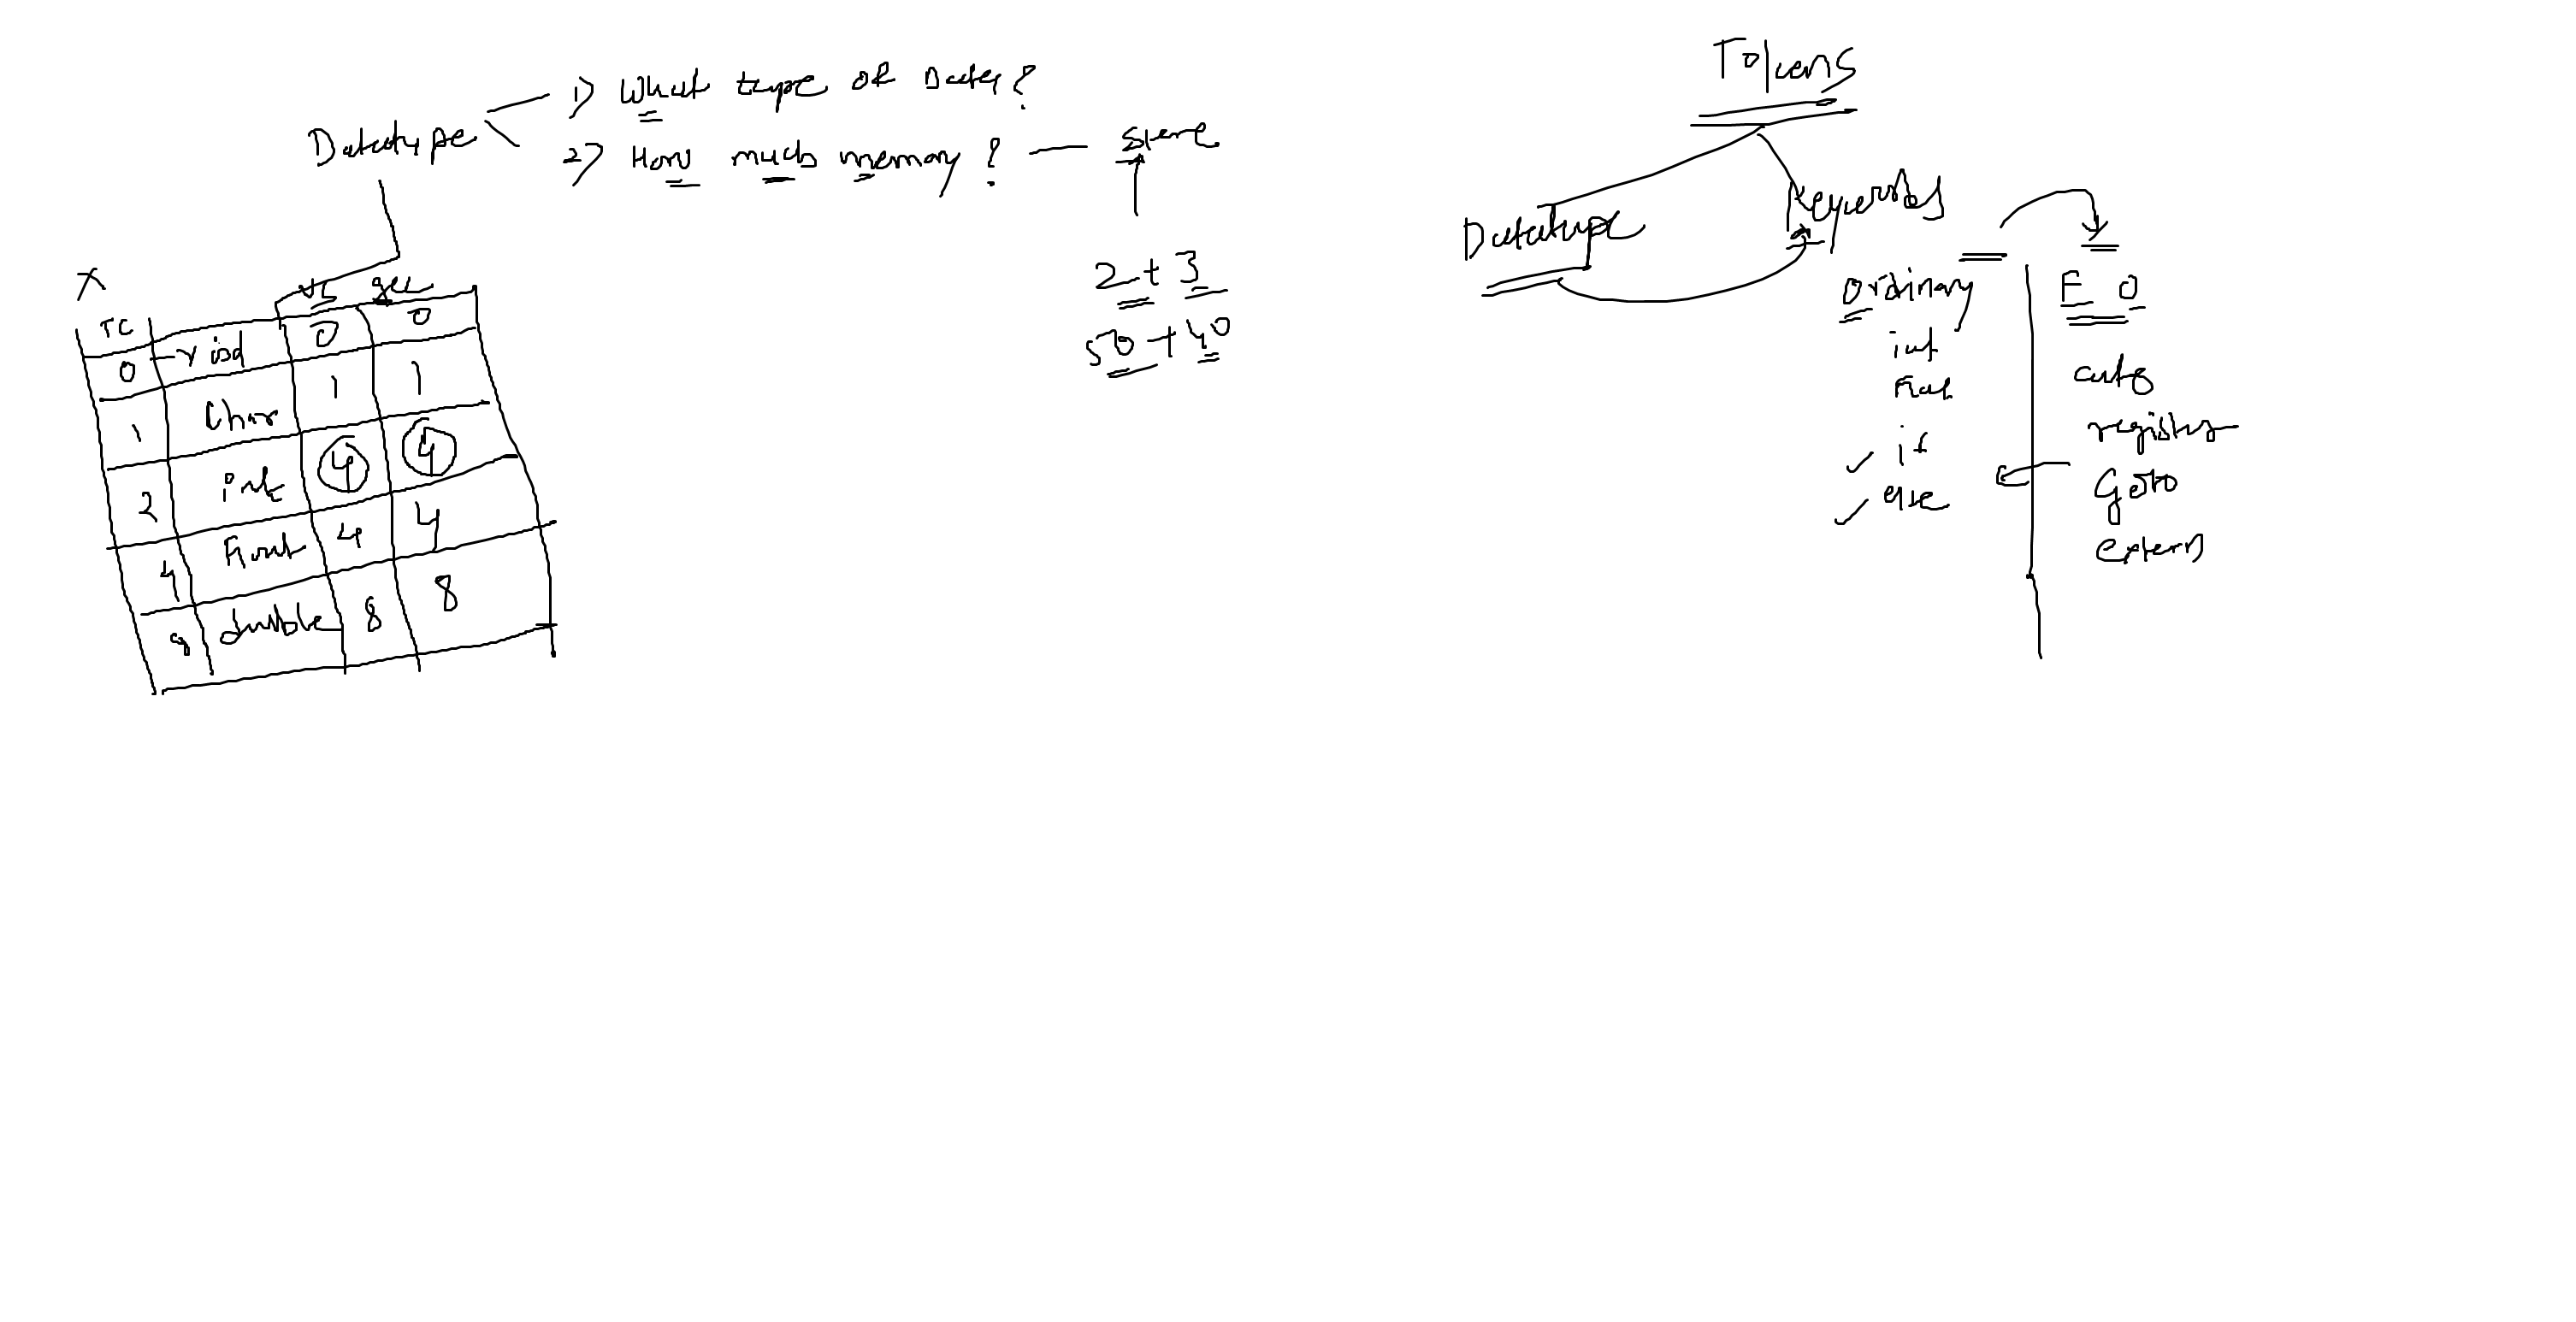 Datatype
1) What type of Data?
2) How much memory? — Store
2 + 3
50 + 40
X
TC VS gcc
0 void 0 0
1 Char 1 1
2 int 4 4
4 Float 4 4
8 double 8 8
Tokens
Datatype Keywords
Ordinary E O
int auto
Float register
if Goto
else extern